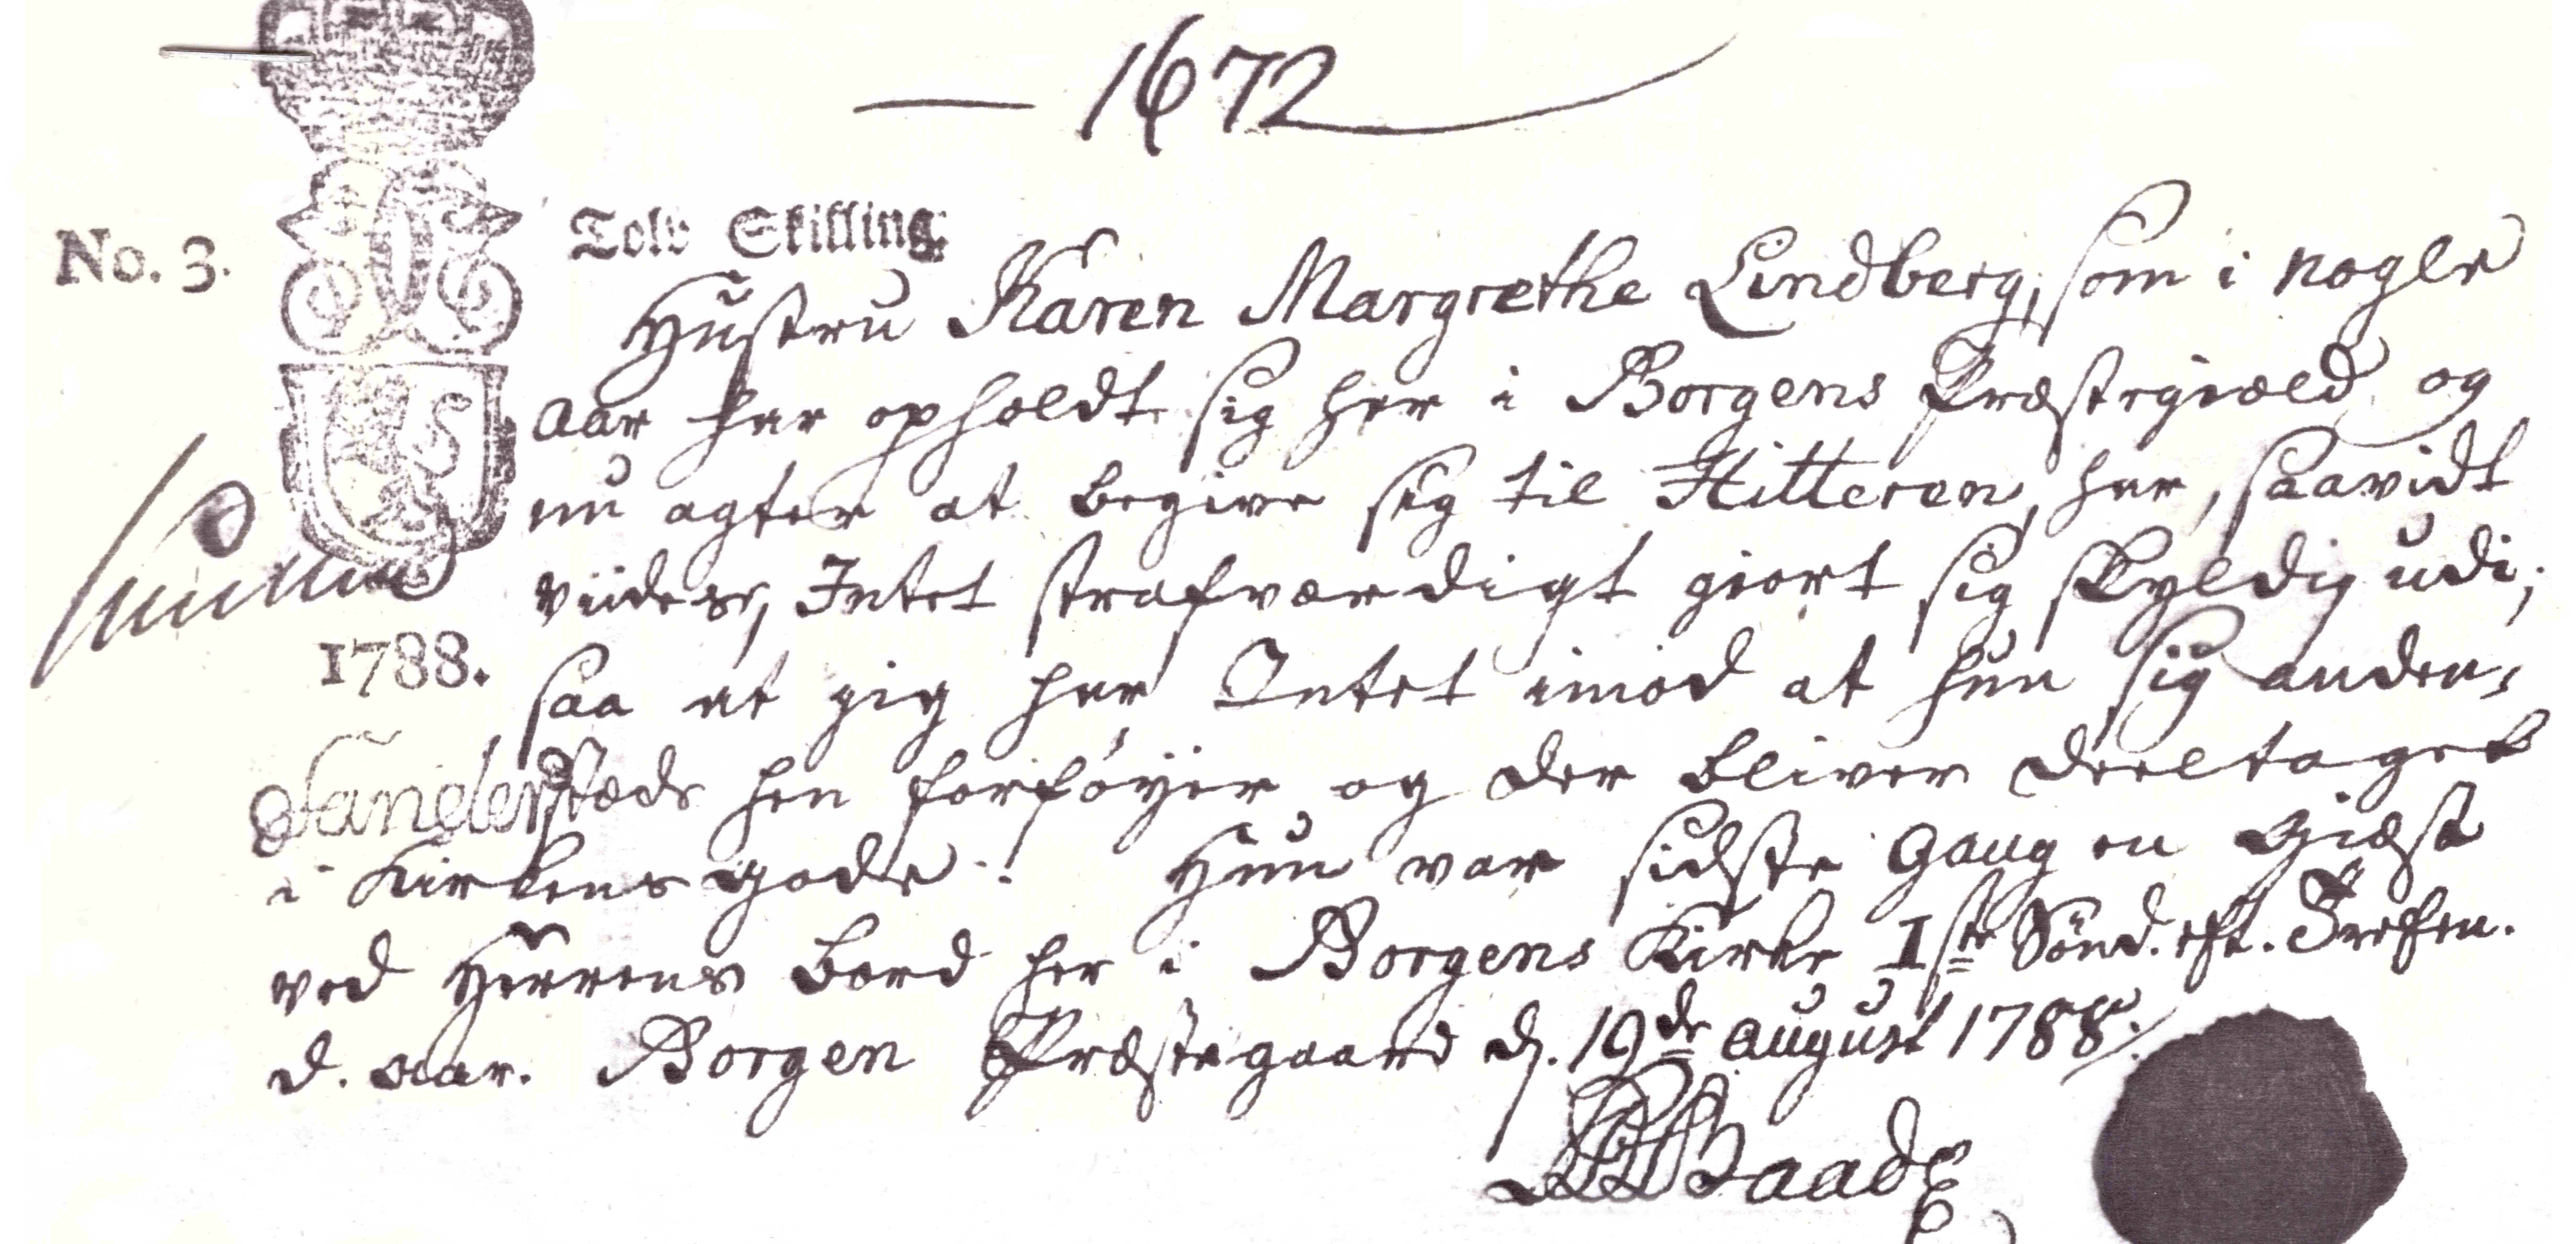 1672
No. 3.
Tolv Skilling.
Hustru Karen Margrethe Lindberg, som i nogle
Aar har opholdt sig her i Borgens Præstegiæld og
nu agter at begive sig til Hitteren, har, saavidt
viides, Intet strafværdigt giort sig skyldig udi;
1788.
saa at jeg har Intet imod at hun sig anden-
stæds hen forføyer og der bliver deeltaget
i Kirkens gode. Hun var sidste Gang en Giæst
ved Herrens Bord her i Borgens Kirke 1ste Sönd. eft. Trefen.
d. Aar. Borgen Præstegaard d. 19de August 1788.
Baade